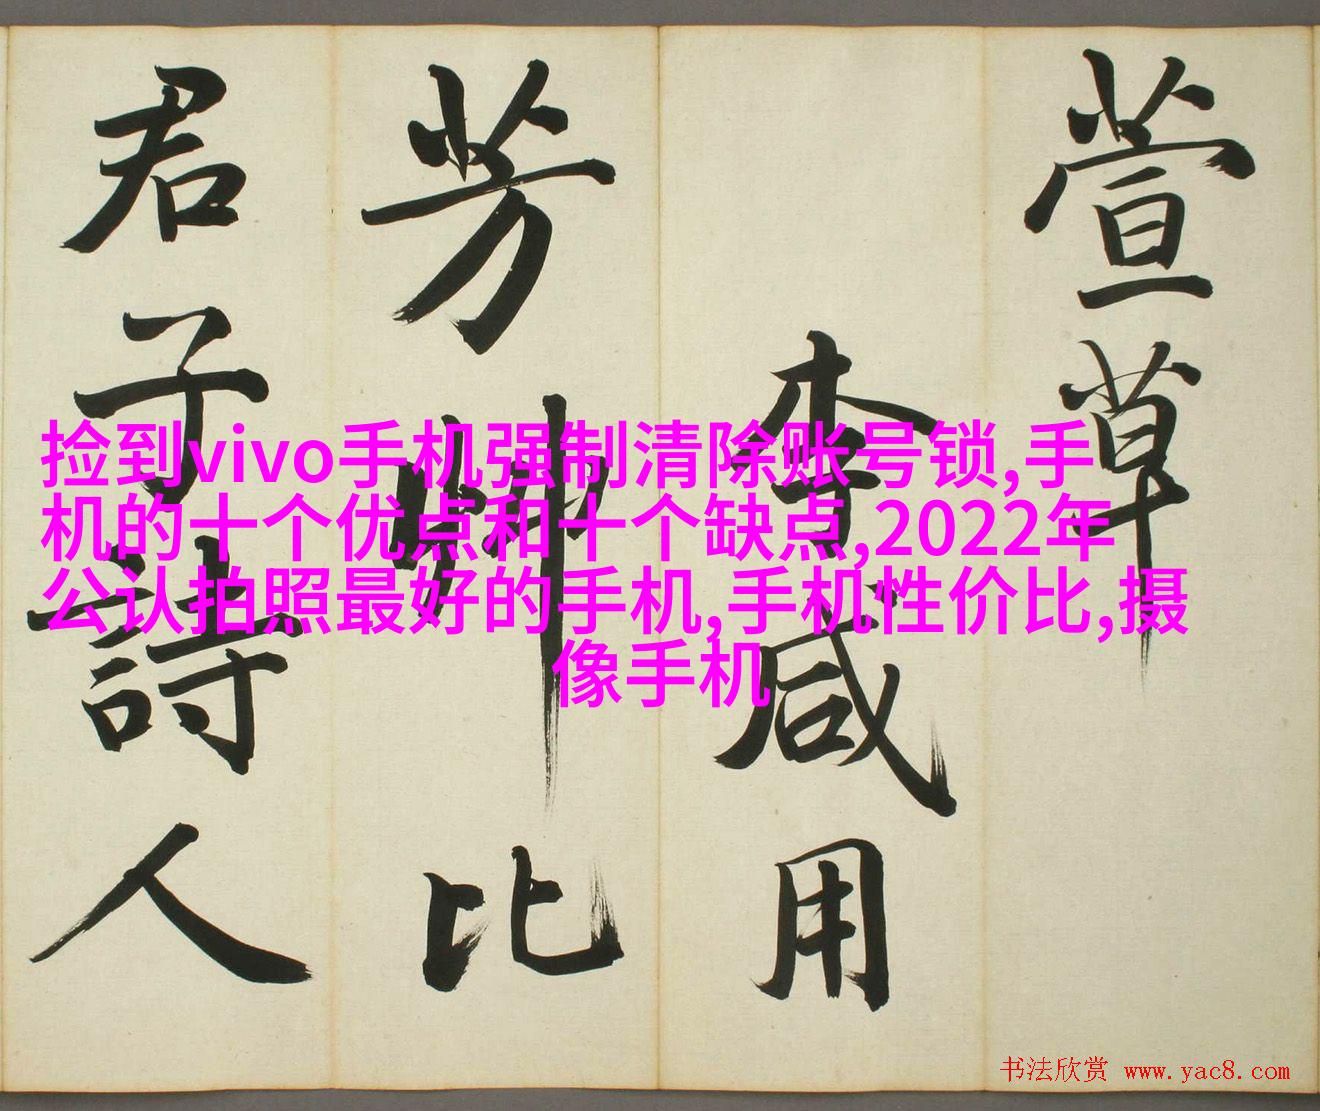 萱草
李咸用
芳艸比
君子詩人
捡到vivo手机强制清除账号锁,手
机的十个优点和十个缺点,2022年
公认拍照最好的手机,手机性价比,摄
像手机
书法欣赏 www.yac8.com